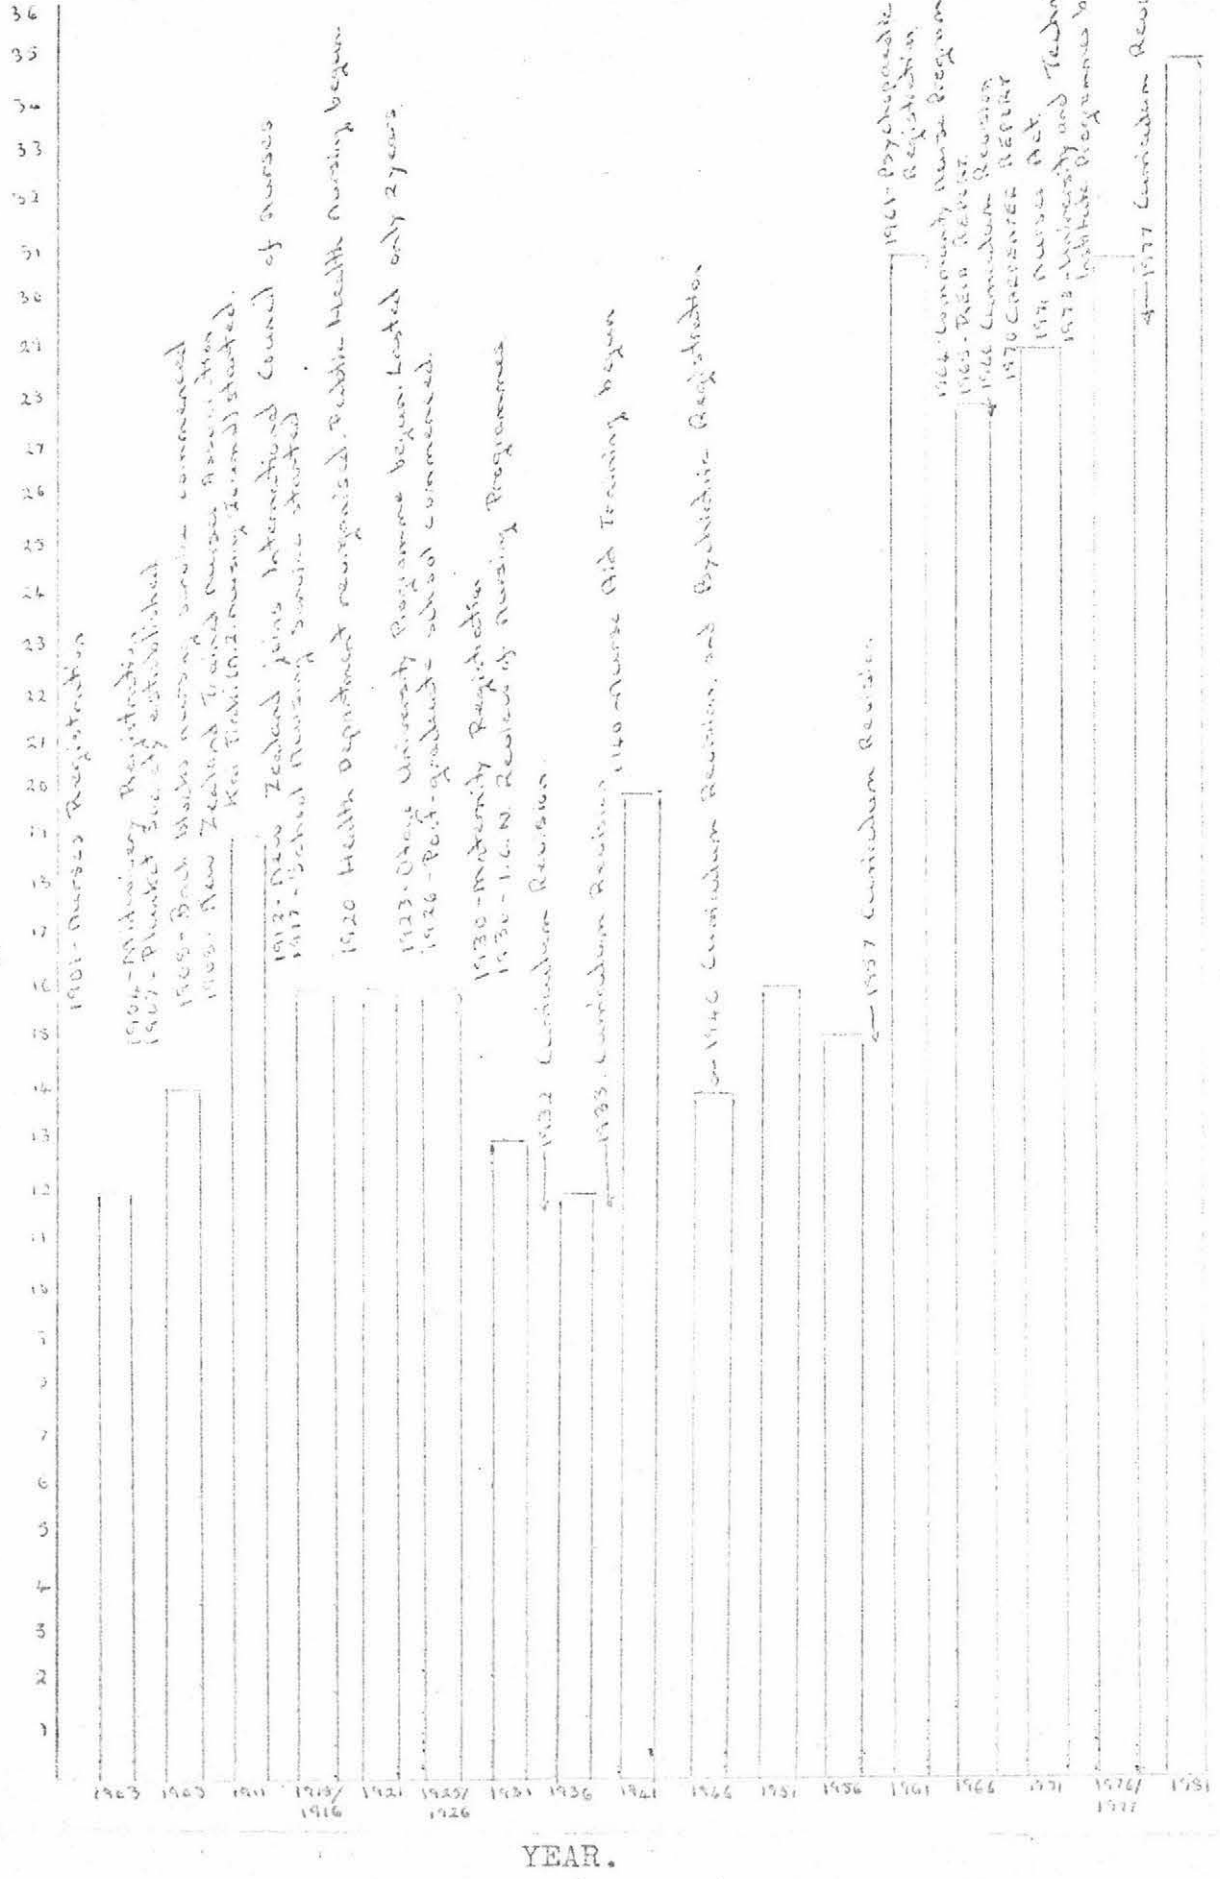 36
35
34
33
32
31
30
29
28
27
26
25
24
23
22
21
20
19
18
17
16
15
14
13
12
11
10
9
8
7
6
5
4
3
2
1
1901-Nurses Registration
1904-Midwifery Registration
1907-Plunket Society established
1908-Back blocks nursing service commenced
1908-New Zealand Trained Nurses Association
Kai Tiaki (N.Z. nursing Journal) started.
1912-New Zealand joins International Council of Nurses
1917-School Nursing Service started
1920 Health Department reorganised. Public Health Nursing begun
1923-Otago University Programme begun. Lasted only 2 years
1928-Post-graduate school commenced.
1930-Maternity Registration
1930-I.C.N. Review of Nursing Programmes
1932 Curriculum Revision.
1933. Curriculum Revision
1940-Nurse Aid Training begun
1946 Curriculum Revision, and Psychiatric Registration
1957 Curriculum Revision
1961-Psychopaedic
Registration
Community Nurse Program
1965-REID REPORT
1966 Curriculum Revision
1970 CARPENTER REPORT
1971 Nurses Act.
1973-University and Techn
Institute Programmes b
1977 Curriculum Revi
1903
1911
1915/
1916
1921
1925/
1926
1931
1936
1941
1946
1951
1956
1961
1966
1971
1976/
1977
1981
YEAR.